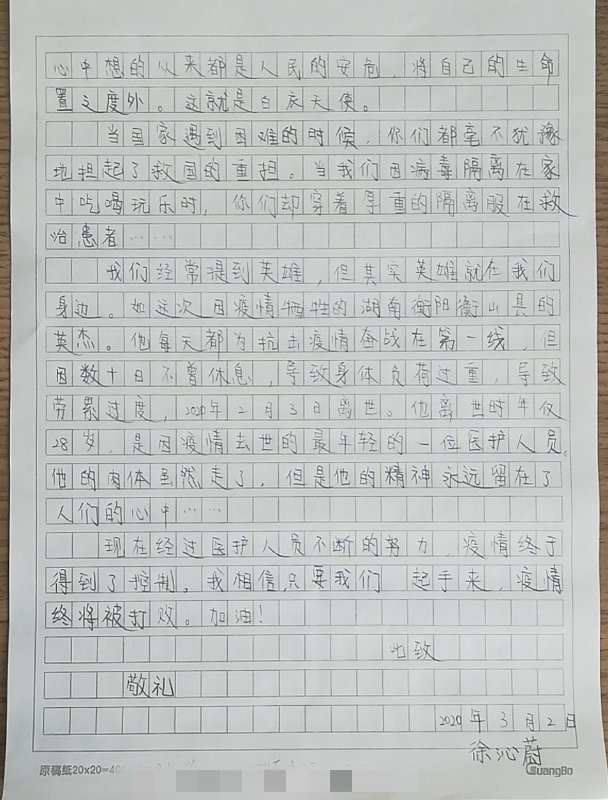 心中想的从来都是人民的安危，将自己的生命
置之度外。这就是白衣天使。
当国家遇到困难的时候，你们都毫不犹豫
地担起了救国的重担。当我们因病毒隔离在家
中吃喝玩乐时，你们却穿着厚重的隔离服在救
治患者……
我们经常提到英雄，但其实英雄就在我们
身边。如这次因疫情牺牲的湖南衡阳衡山县的
英杰。他每天都为抗击疫情奋战在第一线，但
因数十日不曾休息，导致身体负荷过重，导致
劳累过度，2020年2月3日离世。他离世时年仅
28岁，是因疫情去世的最年轻的一位医护人员。
他的肉体虽然走了，但是他的精神永远留在了
人们的心中……
现在经过医护人员不断的努力，疫情终于
得到了控制。我相信,只要我们 起手来，疫情
终将被打败。加油！
此致
敬礼
2020年3月2日
徐沁蔚
原稿纸20x20=40
GuangBo